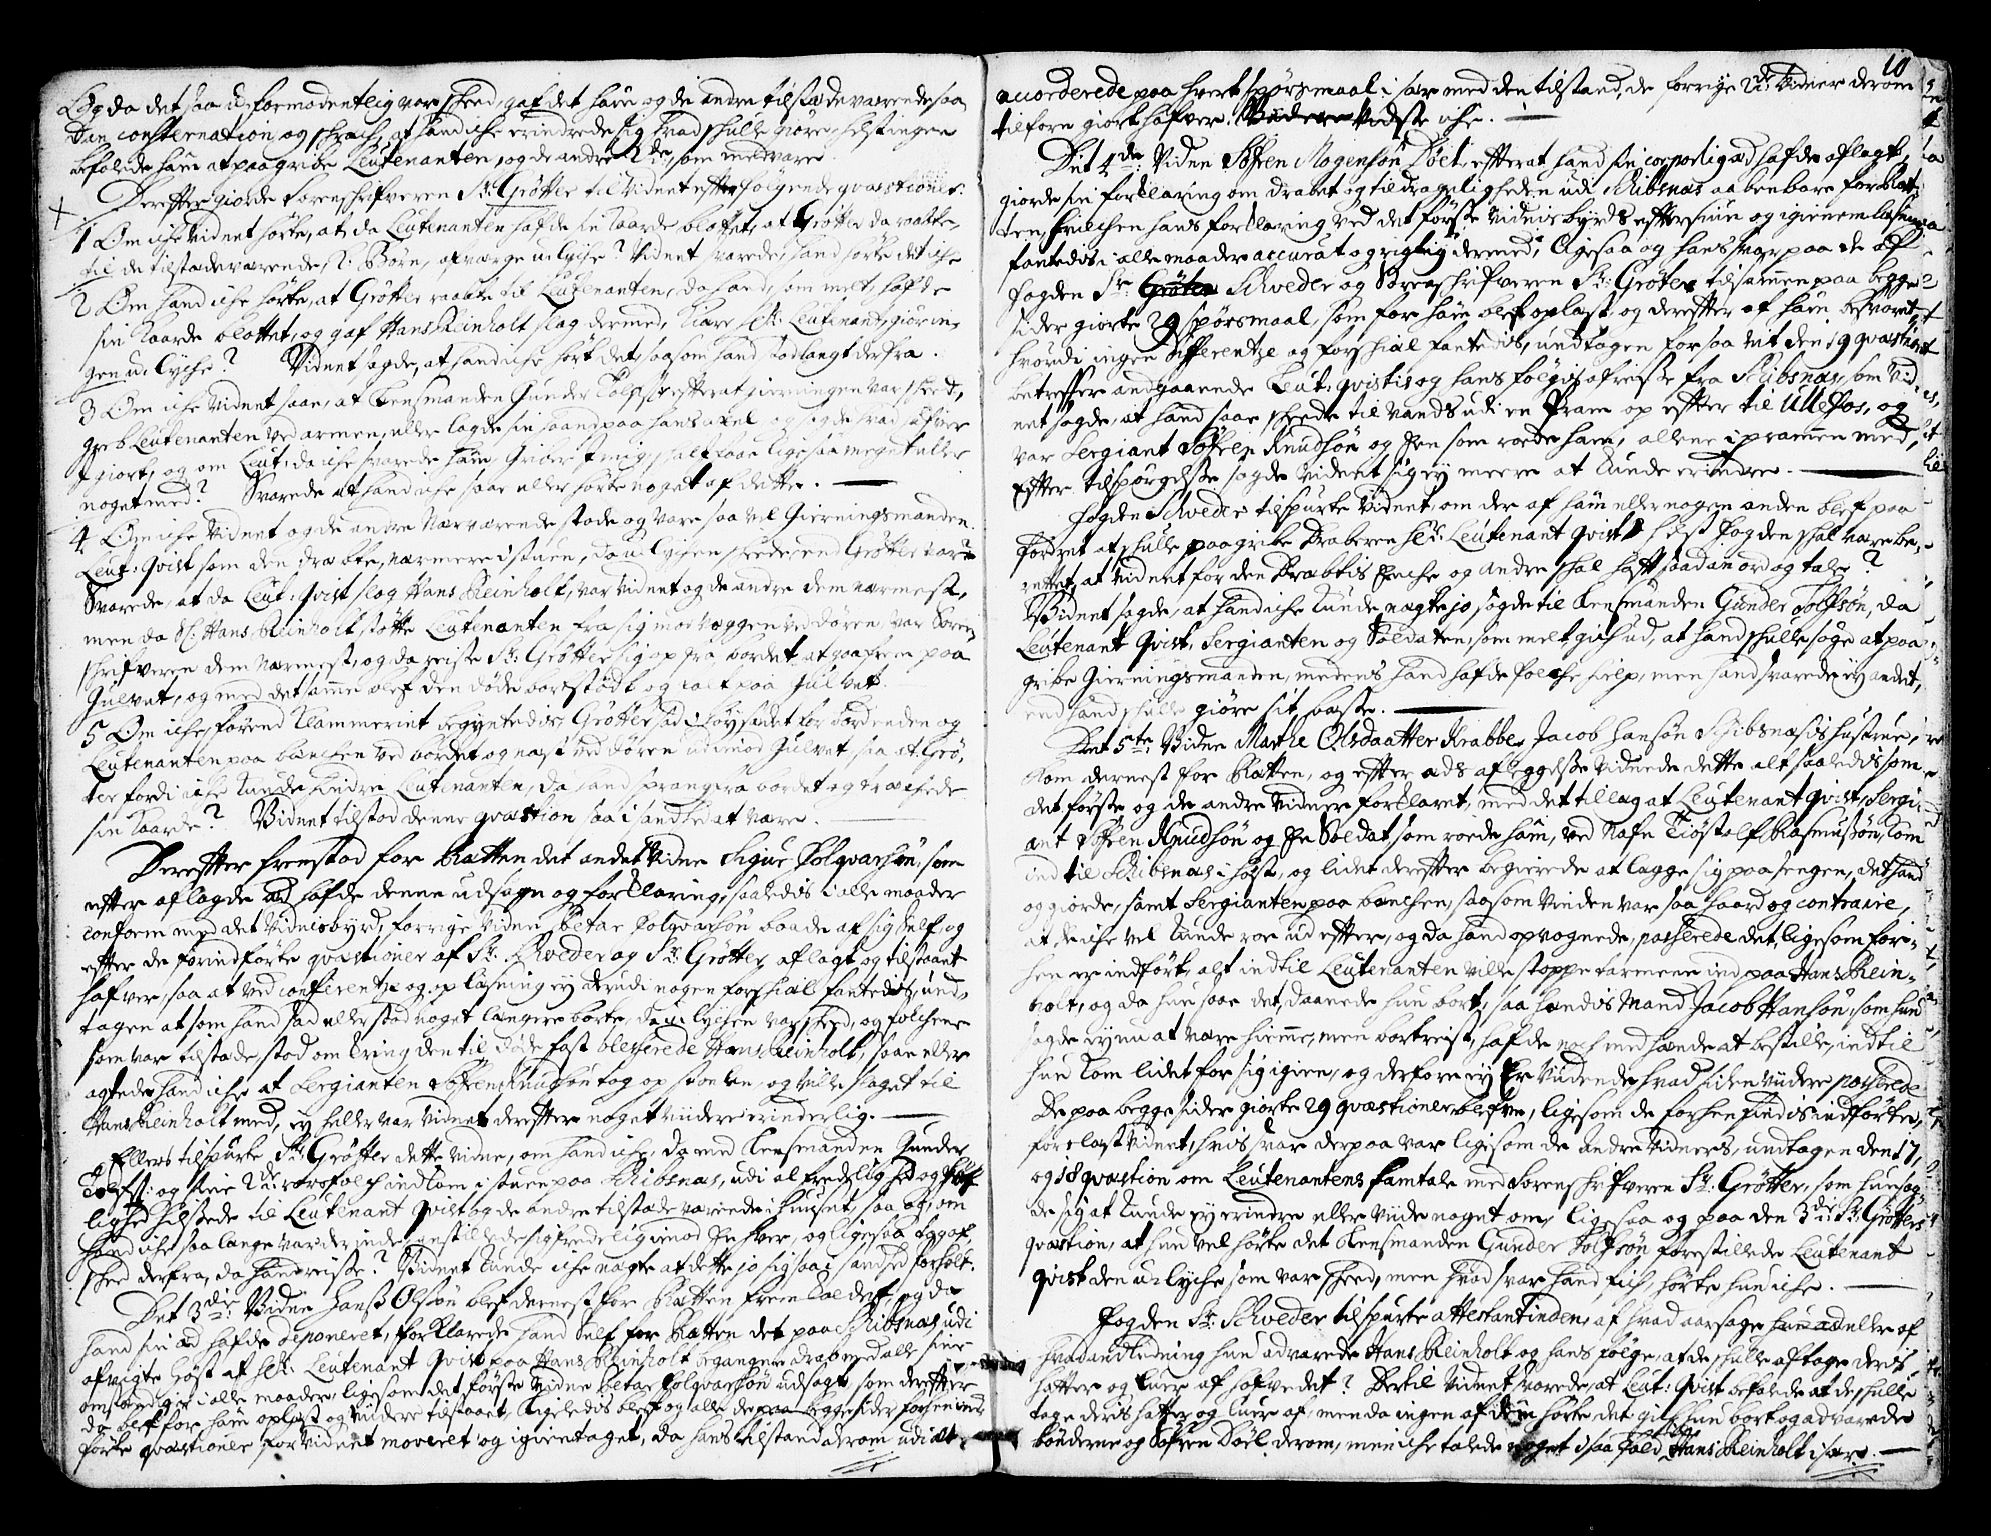 Og da det saa uformodentlig var skeed, gaf det ham og de andre tilstædeværende saa-
dan consternation og skræch, at hand iche erindrede sig hvad skulle giøre, helst ingen
befalede ham at paagribe Leutenanten, og de andre 2de, som med vare.
Derefter giorde Sorenskrifveren Sr. Grøtter til Vidnet efterfølgende qvæstioner:
1 Om iche Vidnet hørte, at da Leutenanten hafde sin Kaarde blottet, at Grøtter da raabte
til de tilstædeværende, Børn, afværge ulyche? Vidnet svarede, hand hørte det iche
2 Om hand iche hørte, at Grøtter raabte til Leutenanten, da hand, som melt, hafde
sin Kaarde blottet, og gaf Hans Reinholt slag dermed, Kiære Hr. Leutenant, giør in-
gen ulyche? Vidnet sagde, at hand iche hørt det, saasom hand stod langt derfra.
3 Om iche Vidnet saae, at Lensmanden Gunder Tolfsøn efterat gierningen var skeed,
greb Leutenanten ved armen, eller lagde sin haand paa hans axel og sagde hvad hafver
I giort, og om Leut: da iche svarede ham, Griber I mig, skalt faae ligesaa meget eller
noget med? Svarede at hand iche saae eller hørte noget af dette.
4 Om iche Vidnet og de andre nærværende stode og vare saa vel Gierningsmanden
Leut: Qvist som den dræbte, nærmere i stuen, da ulychen skeede, end Grøtter var?
Svarede, at da Leut: Qvist slog Hans Reinholt, var Vidnet og de andre dem nærmest,
men da Sl. Hans Reinholt støtte Leutenanten fra sig mod væggen ved døren, var Soren-
skrifveren dem nærmest, og da reiste Sr. Grøtter sig op fra bordet, at gaa frem paa
Gulvet, og med det samme blef den døde bortstødt og falt paa Gulvet.
5 Om iche førend Klammeriet begyntedis, Grøtter sad i høysædet for bordenden og
Leutenanten paa bænchen ved bordet og næst ved døren udimod Gulvet, saa at Grø-
tter fordi iche kunde hindre Leutenanten, da hand sprang fra bordet og træchede
sin Kaarde? Vidnet tilstod denne qvæstion saa i sandhed at være.
Derefter fremstod for Rætten det andet Vidne Sigur Tolqvarsøn, som
efter aflagde æd hafde denne udsagn og forklaring, saaledis i alle maader
conform med det Vidnisbyrd, forrige Vidne Betar Tolqvarsøn baade af sig self, og
efter de forindførte qvæstioner af Sr. Schweder og Sr. Grøtter, aflagt og tilstaaet
hafver, saa at ved conferentze og oplæsning ey derudi nogen forskiæl fantedis, und-
tagen at som hand sad eller stod noget længere borte, da ulychen var skeed, og folchene
som var tilstæde, stod omkring den til døde fast blesserede Hans Reinholt, saae eller
agtede hand iche at Sergianten Søfren Knudsøn tog op stoelen, og ville slaget til
Hans Reinholt med, ey heller var Vidnet derefter noget viidere erinderlig.
Ellers tilspurte Sr. Grøtter dette Vidne, om hand iche, da med Lensmanden Gunder
Tolfs: og sine 2de roersfolch indkom i stuen paa Skibsnæs, udi al fredelighed og høf-
lighed hilsede til Leutenant Qvist og de andre tilstædeværende i huuset, saa og, om
hand iche saa længe var der inde, anstillede sig fredelig imod En hver, og ligesaa begaf
sheed derfra, da hand reiste? Vidnet kunde iche nægte at dette jo sig saa i sandhed forholt.
Det 3die Vidne Hanss Olsøn blef dernest for Rætten fremkaldet, og da
hand sin æd hafde deponeret, forklarede hand self for Rætten det paa Skibsnæs, udi
afvigte Høst af Hr. Leutenant Qvist paa Hans Reinholt begangne drab med alle sine
omstændigh: i alle maader, ligesom det første Vidne Betar Tolqvarsøn udsagt, som derefter
da blef for ham oplæst og viidere tilstaaet, Ligeledis blef og alle de paa begge sider forhen ind-
førte qvæstioner for Vidnet moveret og igientaget, da hans tilstand derom udi alt
10
accorderede paa hvert spørsmaal i sær med den tilstand, de forrige 2de Vidner derom
tilforn giort hafver. Viidere Vidste iche.
Det 4de Vidne Søfren Mogensøn Døel, efterat hand sin corporlig æd hafde aflagt,
giorde sin forklaring om drabet og tildrageligheden udi Skibsnæs aabenbare for Ræt-
ten, hvilchen hans forklaring ved det første Vidnisbyrds eftersiun og igiennemlæsning
fantedis i alle maader accurat og rigtig dermed, Ligesaa og hans svar paa de af
Fogden Sr. Schweder og Sorenskrifveren Sr. Grøter tilsammen paa begge
sider giorte 29 spørsmaal, som for ham blef oplæst og derefter af ham besvaret,
hvorudi ingen differentze og forskiæl fantedis, undtagen for saa vit den 19 qvæstion
betreffer andgaaende Leut: Qvistis og hans følgis afreise fra Skibsnæs, som Vid-
net sagde, at hand saae skeede til vands udi en Pram op efter til Ullefos, og
var Sergiant Søfren Knudsøn og En som roede ham, allene i prammen med,
Efter tilspørgelse sagde Vidnet sig ey meere at kunde erindre.
Fogden Schweder tilspurte Vidnet, om der af ham eller nogen anden blef paa
fordret at skulle paagribe Draberen Hr. Leutenant Qvist? Helst Fogden skal være be-
rettet, at Vidnet for den Dræbtis Enche og andre skal haft saadan ord og tale?
Vidnet sagde, at hand iche kunde nægte jo sagde til Lensmanden Gunder Tolfsøn, da
Leutenant Qvist, Sergianten og Soldaten, som melt, gich ud, at hand skulle søge at paa
gribe Gierningsmanden, medens hand hafde folche hielp, men hand svarede ey andet,
end hand skulle giøre sit beste.
Det 5te Vidne Marthe Olsdaatter Krabbe, Jacob Hansøn Skibsnæsis hustrue,
kom dernest for Rætten, og efter æds aflæggelse vidnede dette alt saaledis som
det første og de andre Vidner forklaret, med det tillæg at Leutenant Qvist, Sergi-
ant Søfren Knudsøn og En Soldat som roede ham, ved Nafn Tiøstolf Rasmusøn, kom
ind til Skibsnæs i høst, og lidet derefter begierede at lægge sig paa sengen, det hand
og giorde, samt Sergianten paa bænchen, saasom Vinden var saa haard og contraire,
at de iche vel kunde roe ud efter, og da hand opvognede, passerede det, ligesom for-
hen er indført, alt indtil Leutenanten ville stoppe tarmene ind paa Hans Rein-
holt, og da hun saae det, daanede hun bort, saa hendis Mand Jacob Hansøn, som hun
sagde ey nu at være hiemme, men bortreist, hafde noch med hende at bestille, indtil
hun kom lidet for sig igien, og derfore ey Er vidende hvad siden viidere passerede
De paa begge sider giorte 29 qvæstioner blefve, ligesom de forhen findis indførte,
forelæst Vidnet, hvis svar derpaa var ligesom de andre Vidners, undtagen den 17,
og 18 qvæstion om Leutenantens samtale med Sorenskrifveren Sr. Grøtter, som hun sag-
de sig at kunde ey erindre eller viide noget om, ligesaa og paa den 3die Sr. Grøtters
qvæstion, at hun vel hørte det Lensmanden Gunder Tolfsøn forestillede Leutenant
Qvist den ulyche som var skeed, men hvad svar hand fich, hørte hun iche.
Fogden Sr. Schweder tilspurte attestantinden, af hvad aarsage hun æd eller af
hvad andledning hun advarede Hans Reinholt og hans følge, at de skulle aftage deris
hatter og luer af hofvedet? Dertil Vidnet svarede, at Leut: Qvist befalede at de skulle
tage deris hatter og luer af, men da ingen af dem hørte det, gich hun bort og advarede
bønderne og Søfren Døel derom, men iche talede noget i saa fald til Hans Reinholt i sær.